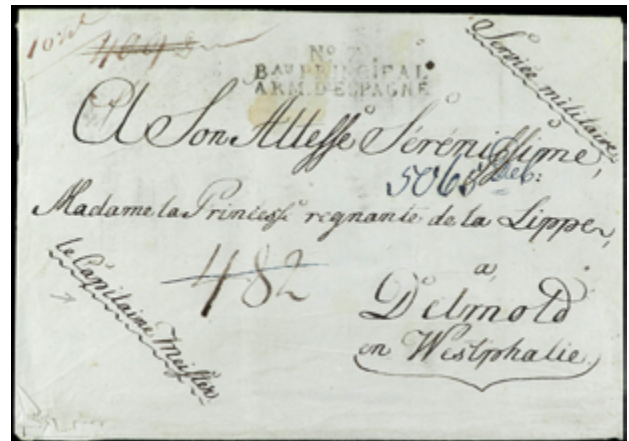 4098
Nº 7
Bᴬᵁ PRINCIPAL
ARM. D'ESPAGNE
Service militaire
A Son Altesse Sérénissime,
5063
Madame la Princesse regnante de la Lippe,
482
a
Detmold
en Westphalie.
le Capitaine Meister